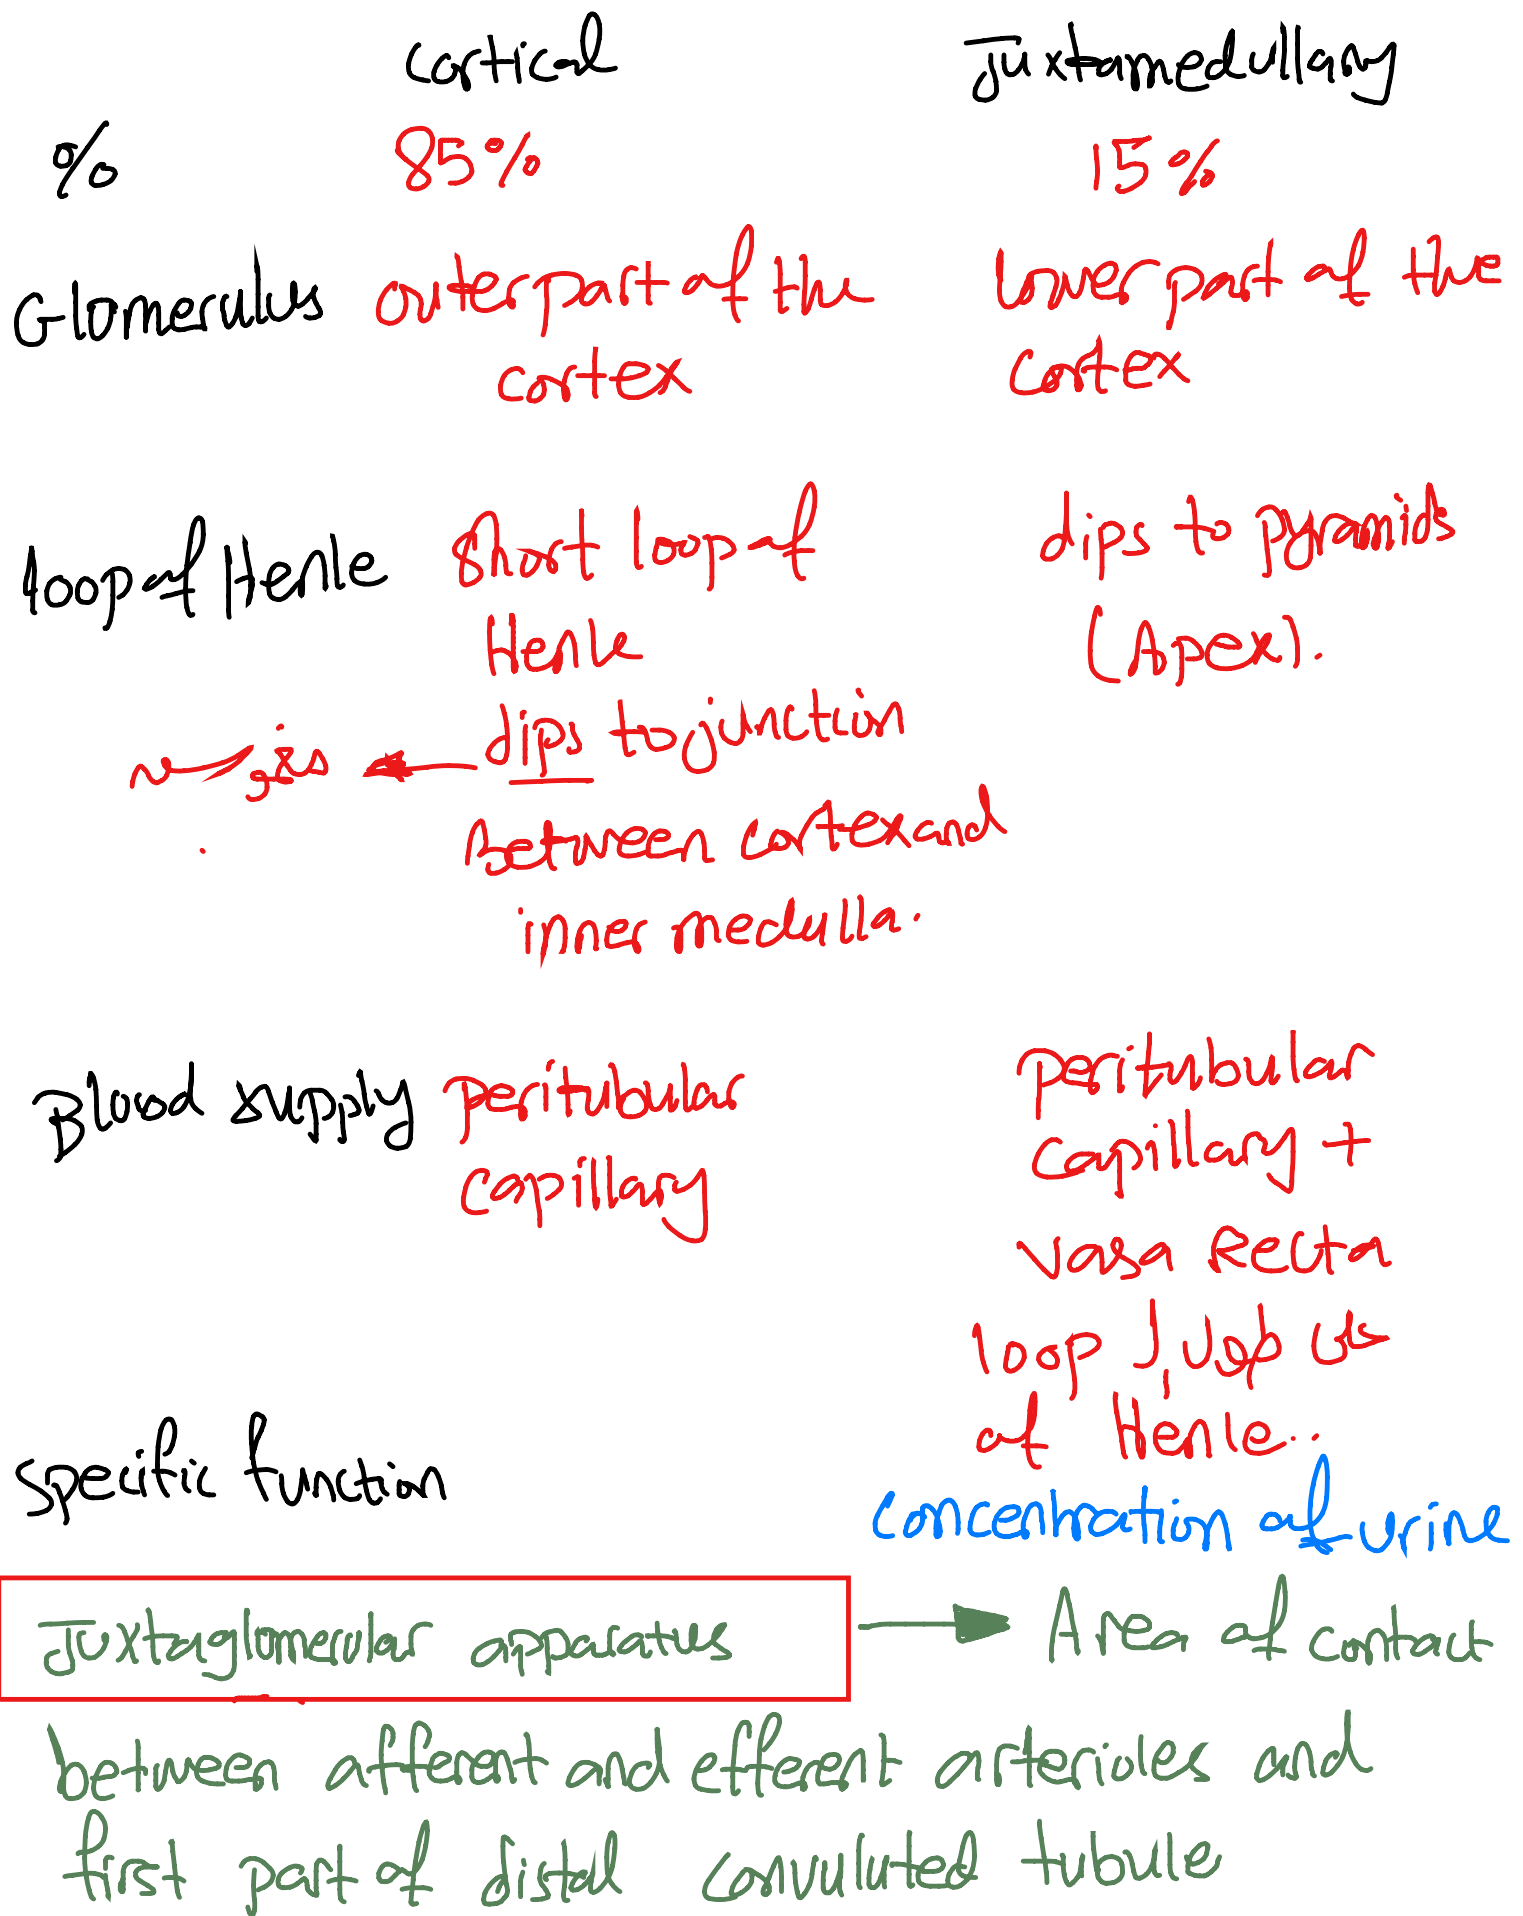 cortical Juxtamedullary
% 85% 15%
Glomerulus outer part of the lower part of the
cortex cortex
loop of Henle short loop of dips to pyramids
Henle (Apex).
dips to junction
Between cortex and
inner medulla.
Blood supply peritubular peritubular
capillary capillary +
vasa Recta
loop
of Henle..
specific function
concentration of urine
Juxtaglomerular apparatus Area of contact
between afferent and efferent arterioles and
first part of distal convuluted tubule